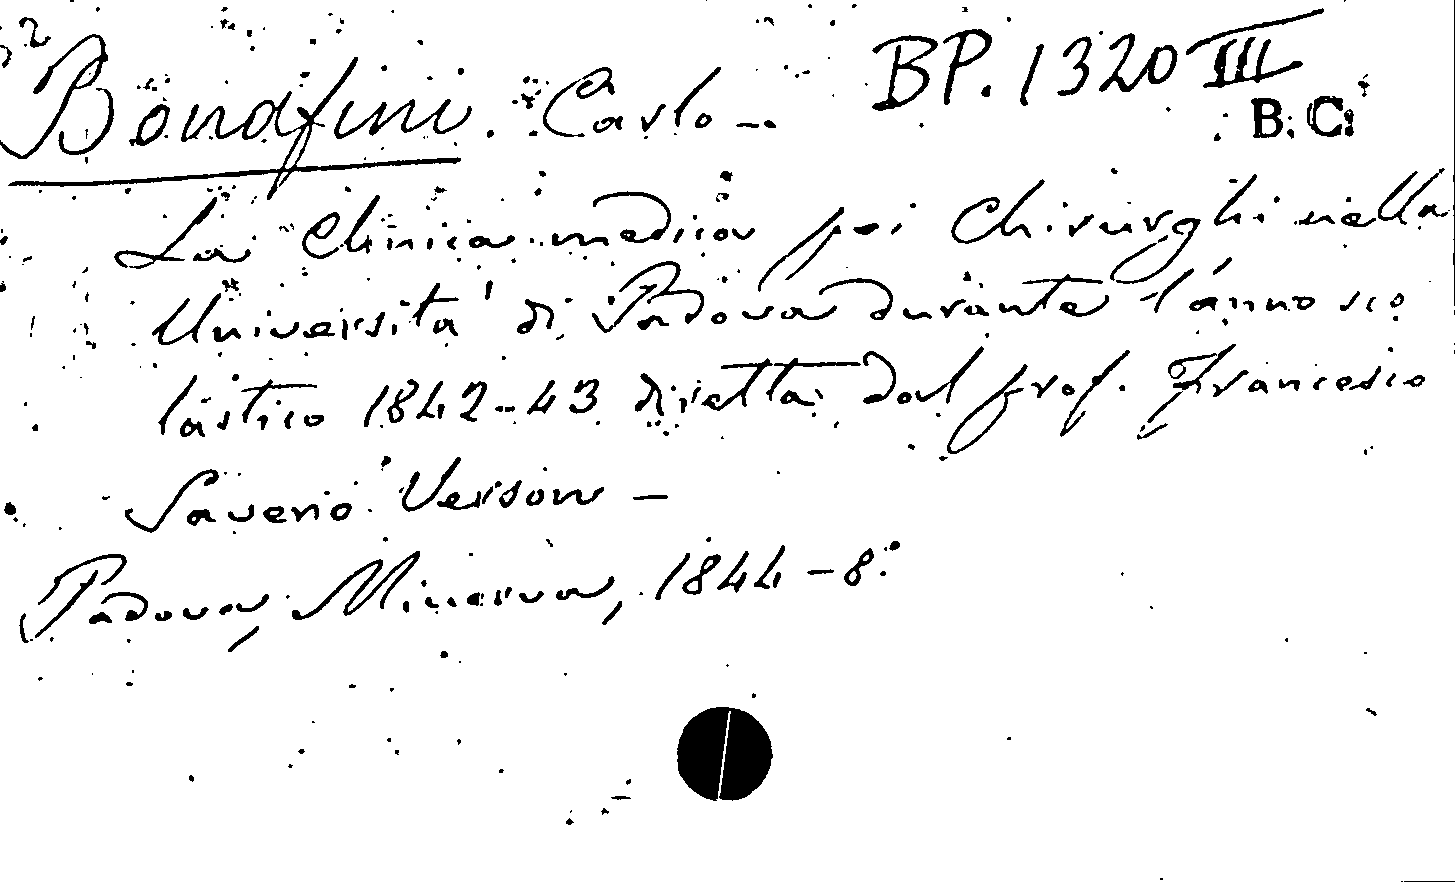 2
Bonafini. Carlo -. BP. 1320 III
B. C.
La Clinica medica poi Chirurghi nella
Universita' di Padova durante l'anno sco
lastico 1842-43 diretta dal prof. Francesco
Saverio Verson -
Padova, Minerva, 1844 - 8°